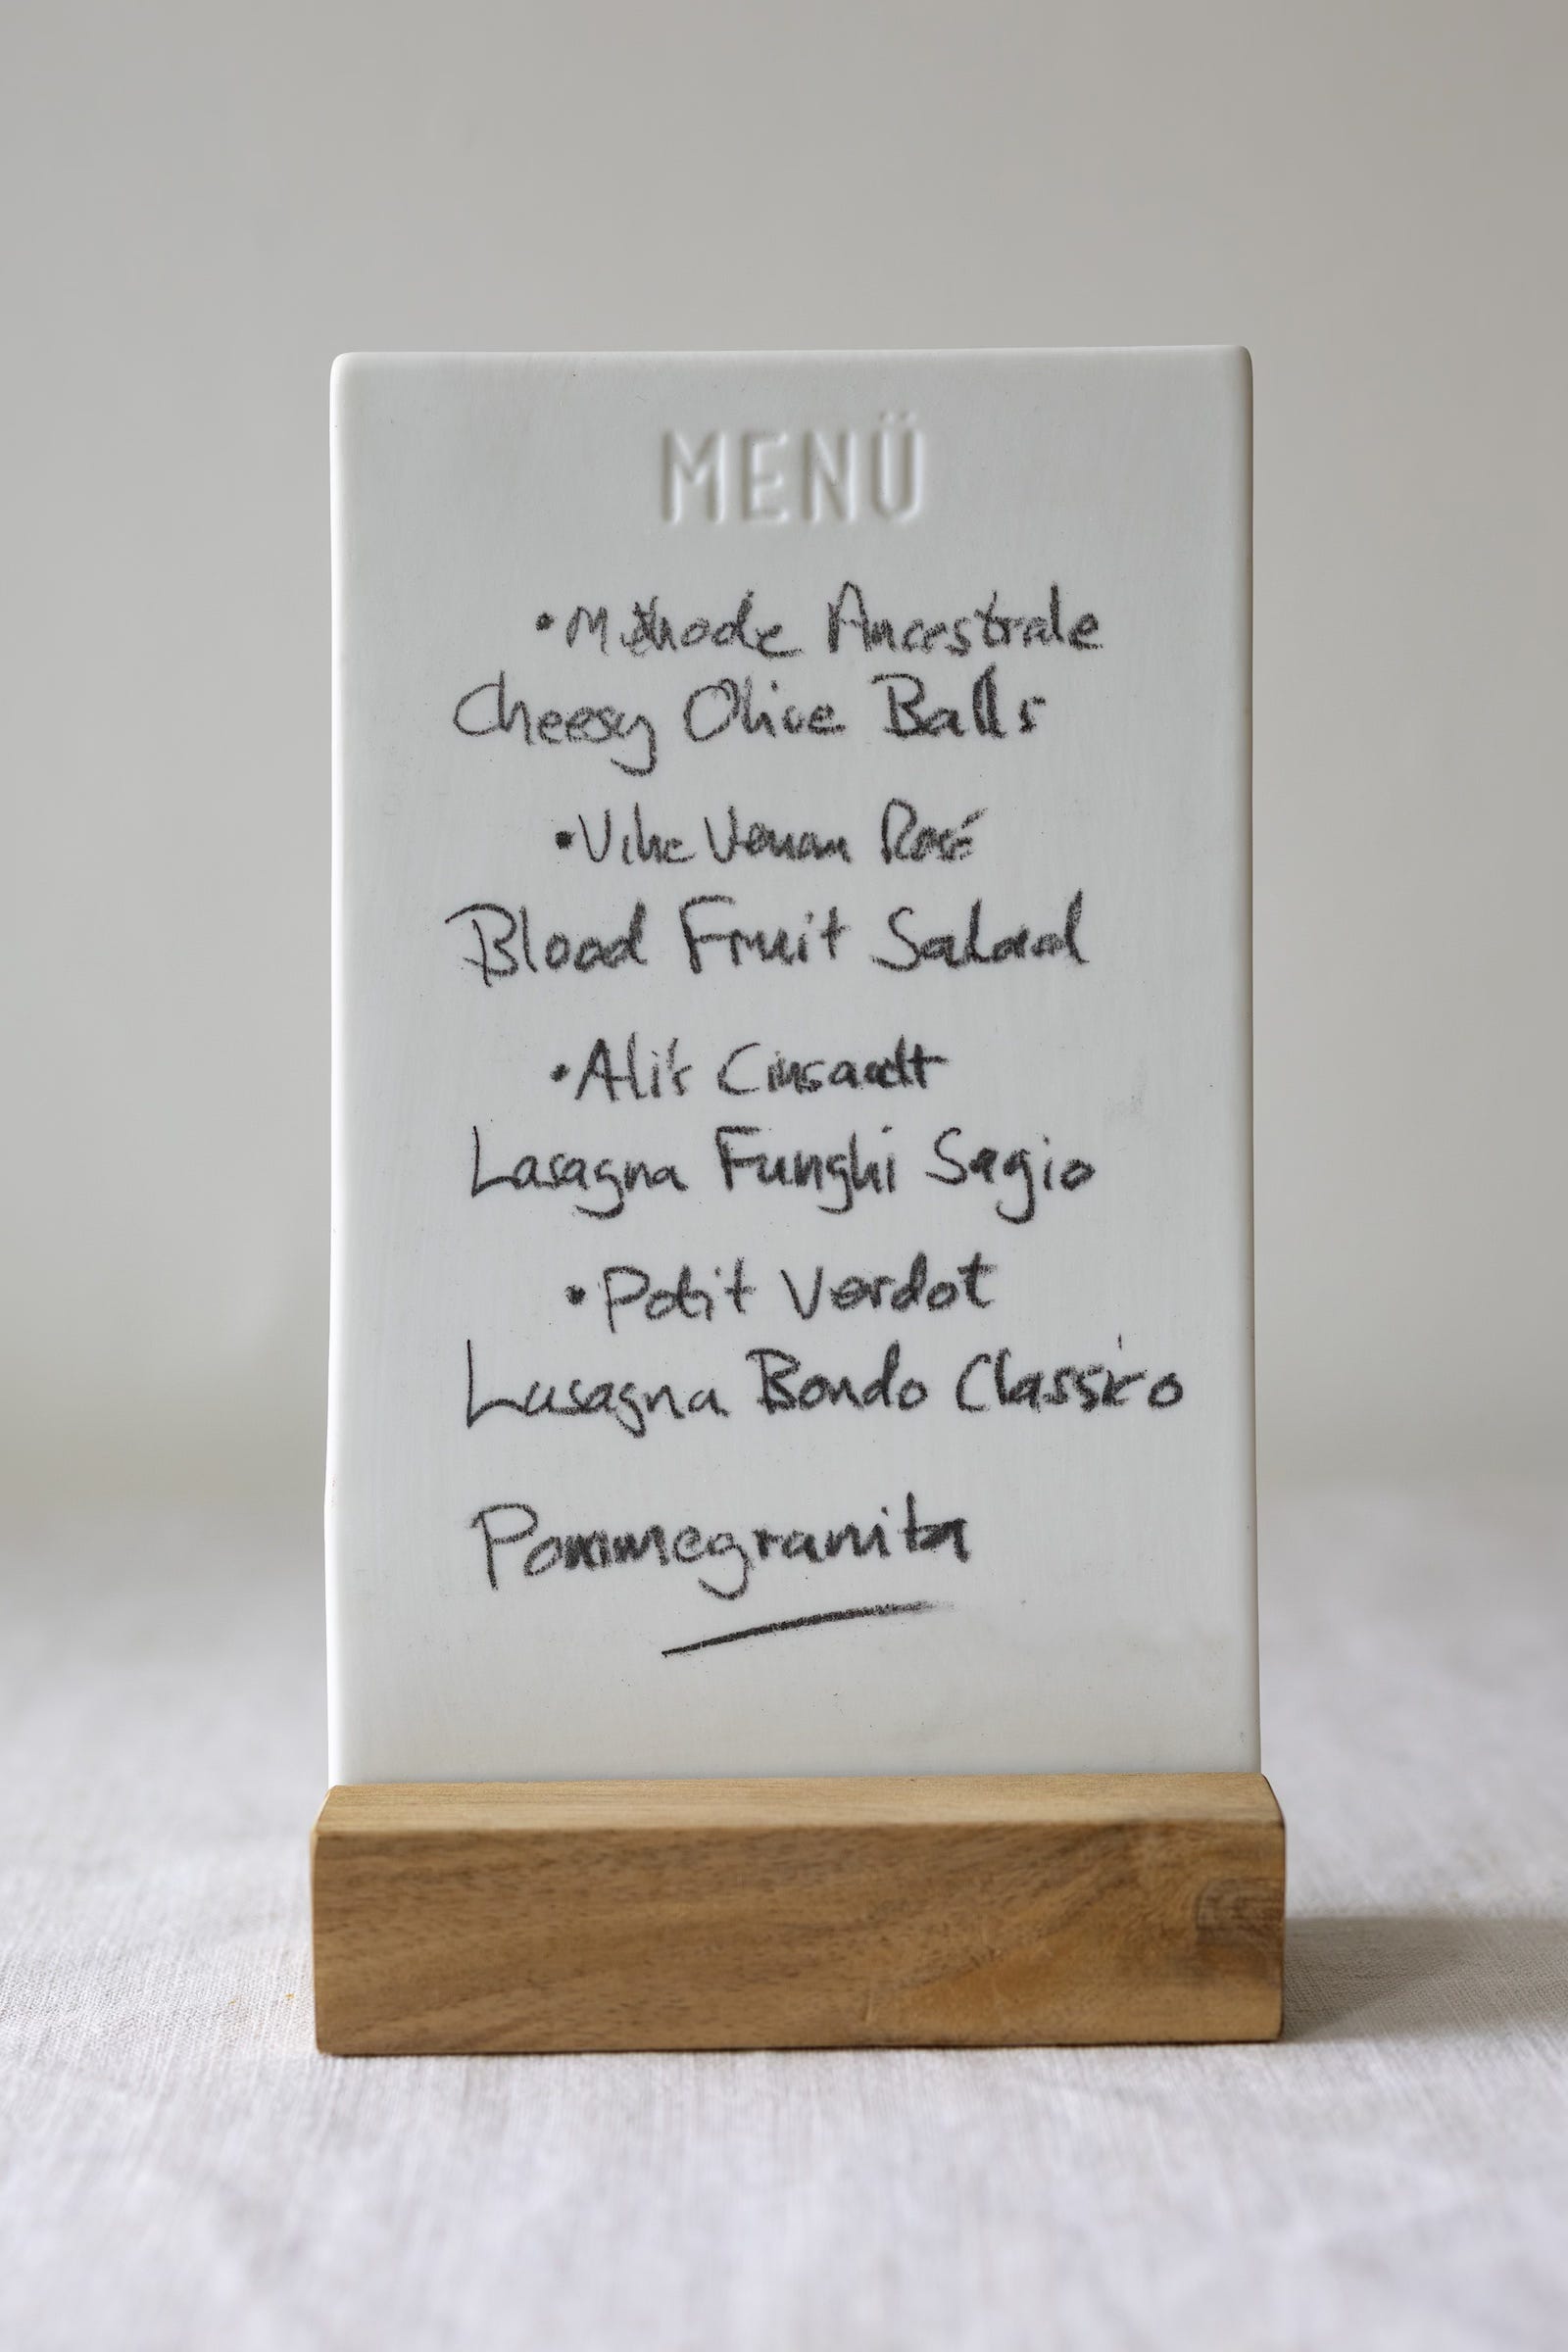 MENÜ
• Méthode Ancestrale
Cheesy Olive Balls
• Rosé
Blood Fruit Salad
• Cinsault
Lasagna Funghi Sagio
• Petit Verdot
Lasagna Bondo Classico
Pommegranita